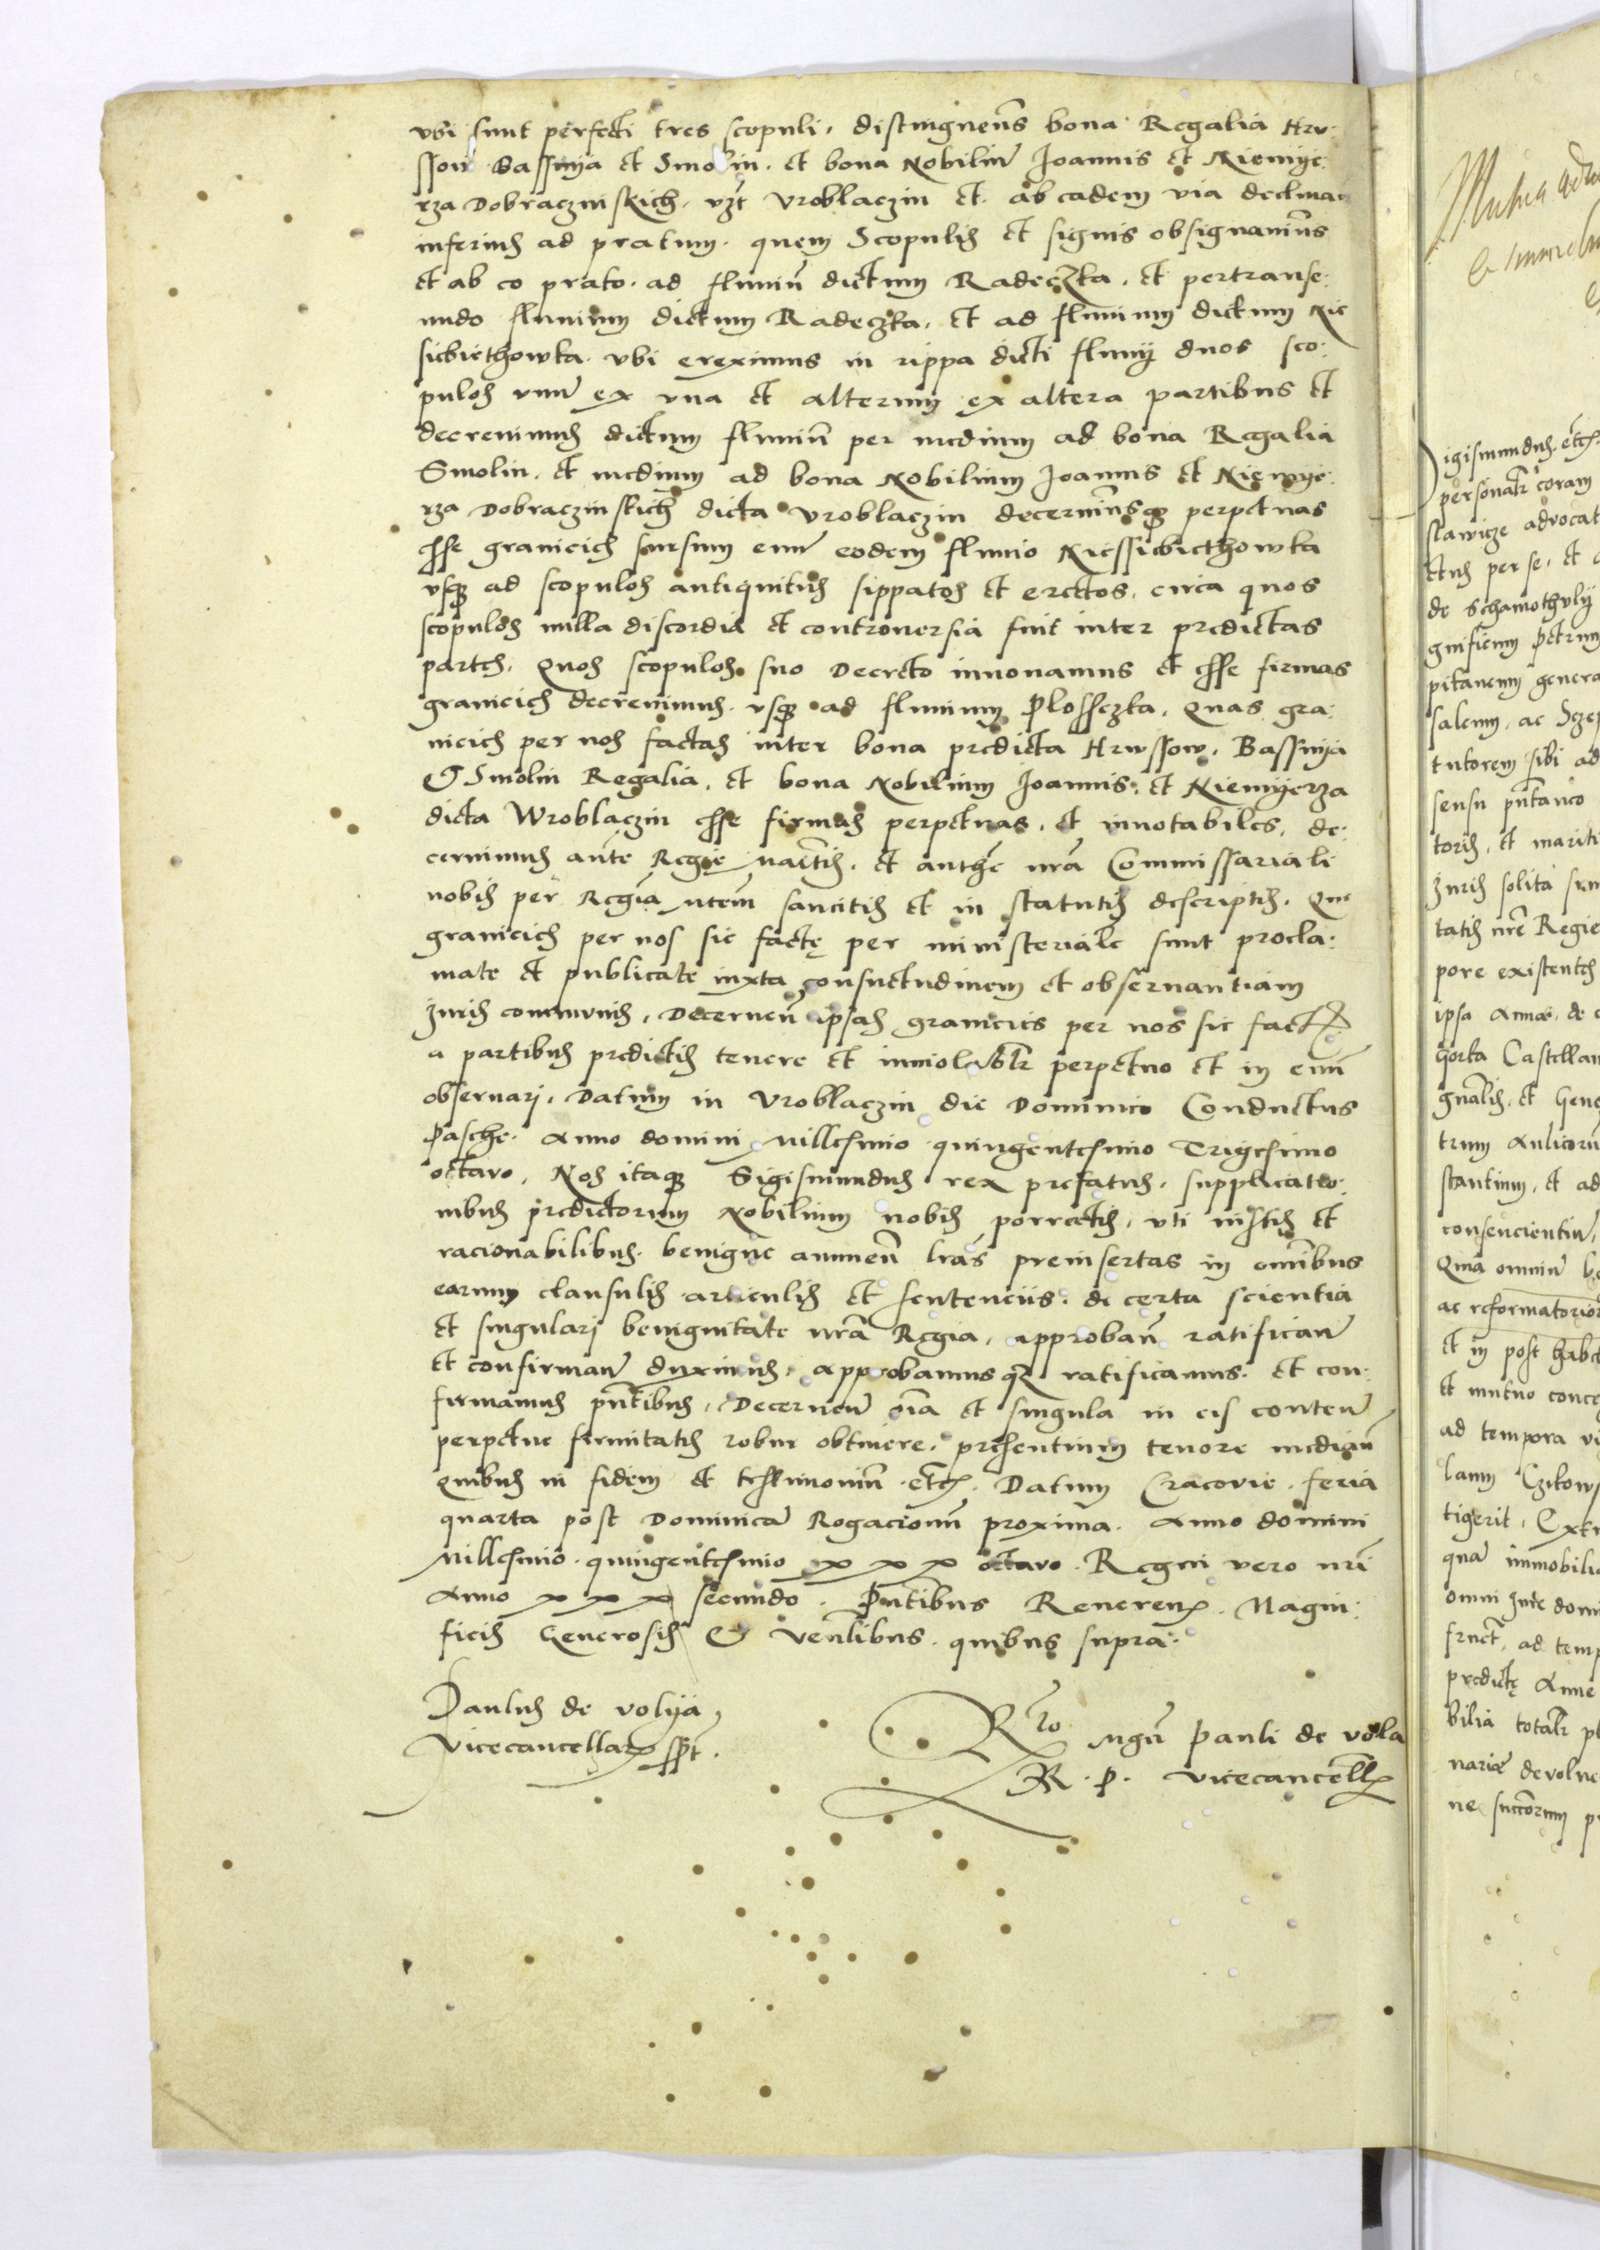 vbi sunt perfecti tres scopuli, distinguen̄s bona Regalia Hrv:
ssow Bassnya et Smolin. et bona Nobiliū Joannis et Niemye:
rza Dobraczinskich. vzt Vroblaczin et ab eadem via declinan
inferius ad pratum. quem Scopulis et signis obsignauim̄us
et ab eo prato. ad fluuiū dictum Radeczka. et pertranse:
undo fluuium dictum Radeczka, et ad fluuium dictum Nie
siebiethowka. vbi ereximus in rippa dicti fluuij duos sco:
pulos vnū ex vna et alterum ex altera partibus et
decreuimus dictum fluuiū per medium ad bona Regalia
Smolin. et medium ad bona Nobilium Joannis et Niemye:
rza Dobraczinskich dicta Vroblaczin decernim̄usq3 perpetuas
esse granicies sursum enī eodem fluuio Niessiebiethowka
vsq3 ad scopulos antiquitus sippatos et erectos, circa quos
scopulos nulla discordia et controuersia fuit inter predictas
partes. Quos scopulos suo Decreto innouamus et esse firmas
granicies decreuimus. vsq3 ad fluuium Plossczka. Quas gra:
nicies per nos factas inter bona predicta Hrwssow, Bassnya
Et Smolin Regalia, et bona Nobilium Joannis, et Niemyerza
dicta Wroblaczin esse firmas perpetuas, et innotabiles, de:
cernimus aūte Regie Maītis. et auth̄e nrā Commissariali
nobis per Regiā mtem̄ sancitis et in statutis descriptis. Que
granicies per nos sic factę per ministeriale sunt procla:
mate et publicate iuxta consuetudinem et obseruantiam
Juris communis, Decernen̄ ipsas granicies per nos sic fact
a partibus predictis tenere et inuiolablr perpetuo et in euū
obseruari, Datum in Vroblaczin die Dominico Conductus
Pasche. Anno domini Millesimo quingentesimo Trigesimo
octauo, Nos itaq3 Sigismundus rex prefatus, supplicatio:
nibus predictorum Nobilium nobis porrectis, vti iustis et
racionabilibus. benigne annuen̄ lrās preinsertas in omībus
earum clausulis articulis et sentenciis. de certa scientia
et singulari benignitate nrā Regia, approban̄ ratifican̄
et confirman̄ duximus, Approbamus q3 ratificamus. et con:
firmamus pn̄tibus, Decernen̄ oīa et singula in eis conten̄
perpetue firmitatis robur obtinere, presentium tenore median̄
Quibus in fidem et testimoniū etc. Datum Cracovie feria
quarta post Dominicā Rogacionū proxima. Anno domini
Millesimo quingentesimo xxx octavo. Regni vero nrī
Anno xxx secundo. Pn̄tibus Reueren. Magni:
ficis Generosis Et Ven̄libus. quibus supra.
Paulus de volya
Vicecancellar sst.
Rro Mgci Pauli de vola
R. P. vicecancell
igismundus. etc.
personalr coram
slawicze advocat
ctus per se, et
de Schamothvly
gnificum Petrum
pitaneum genera
salem, ac
tutorem sibi ad
sensu pn̄taneo
toris, et mariti
Juris solita sun
tatis nrē Regie
pore existentes
ipsa Anna, de
Gorka Castellan
gnālis, et Gene
trum Aulicorū
stantium, et ad
consencientiū,
Quia omnium b
ac reformatorior
et in post habe
et mutuo conce
ad tempora vi
lanum Czikows
tigerit, Extr
qua immobilia
omni Jure domi
fruct, ad temp
predictę Anne
bilia totalr pl
narie devolue
ne succorum p